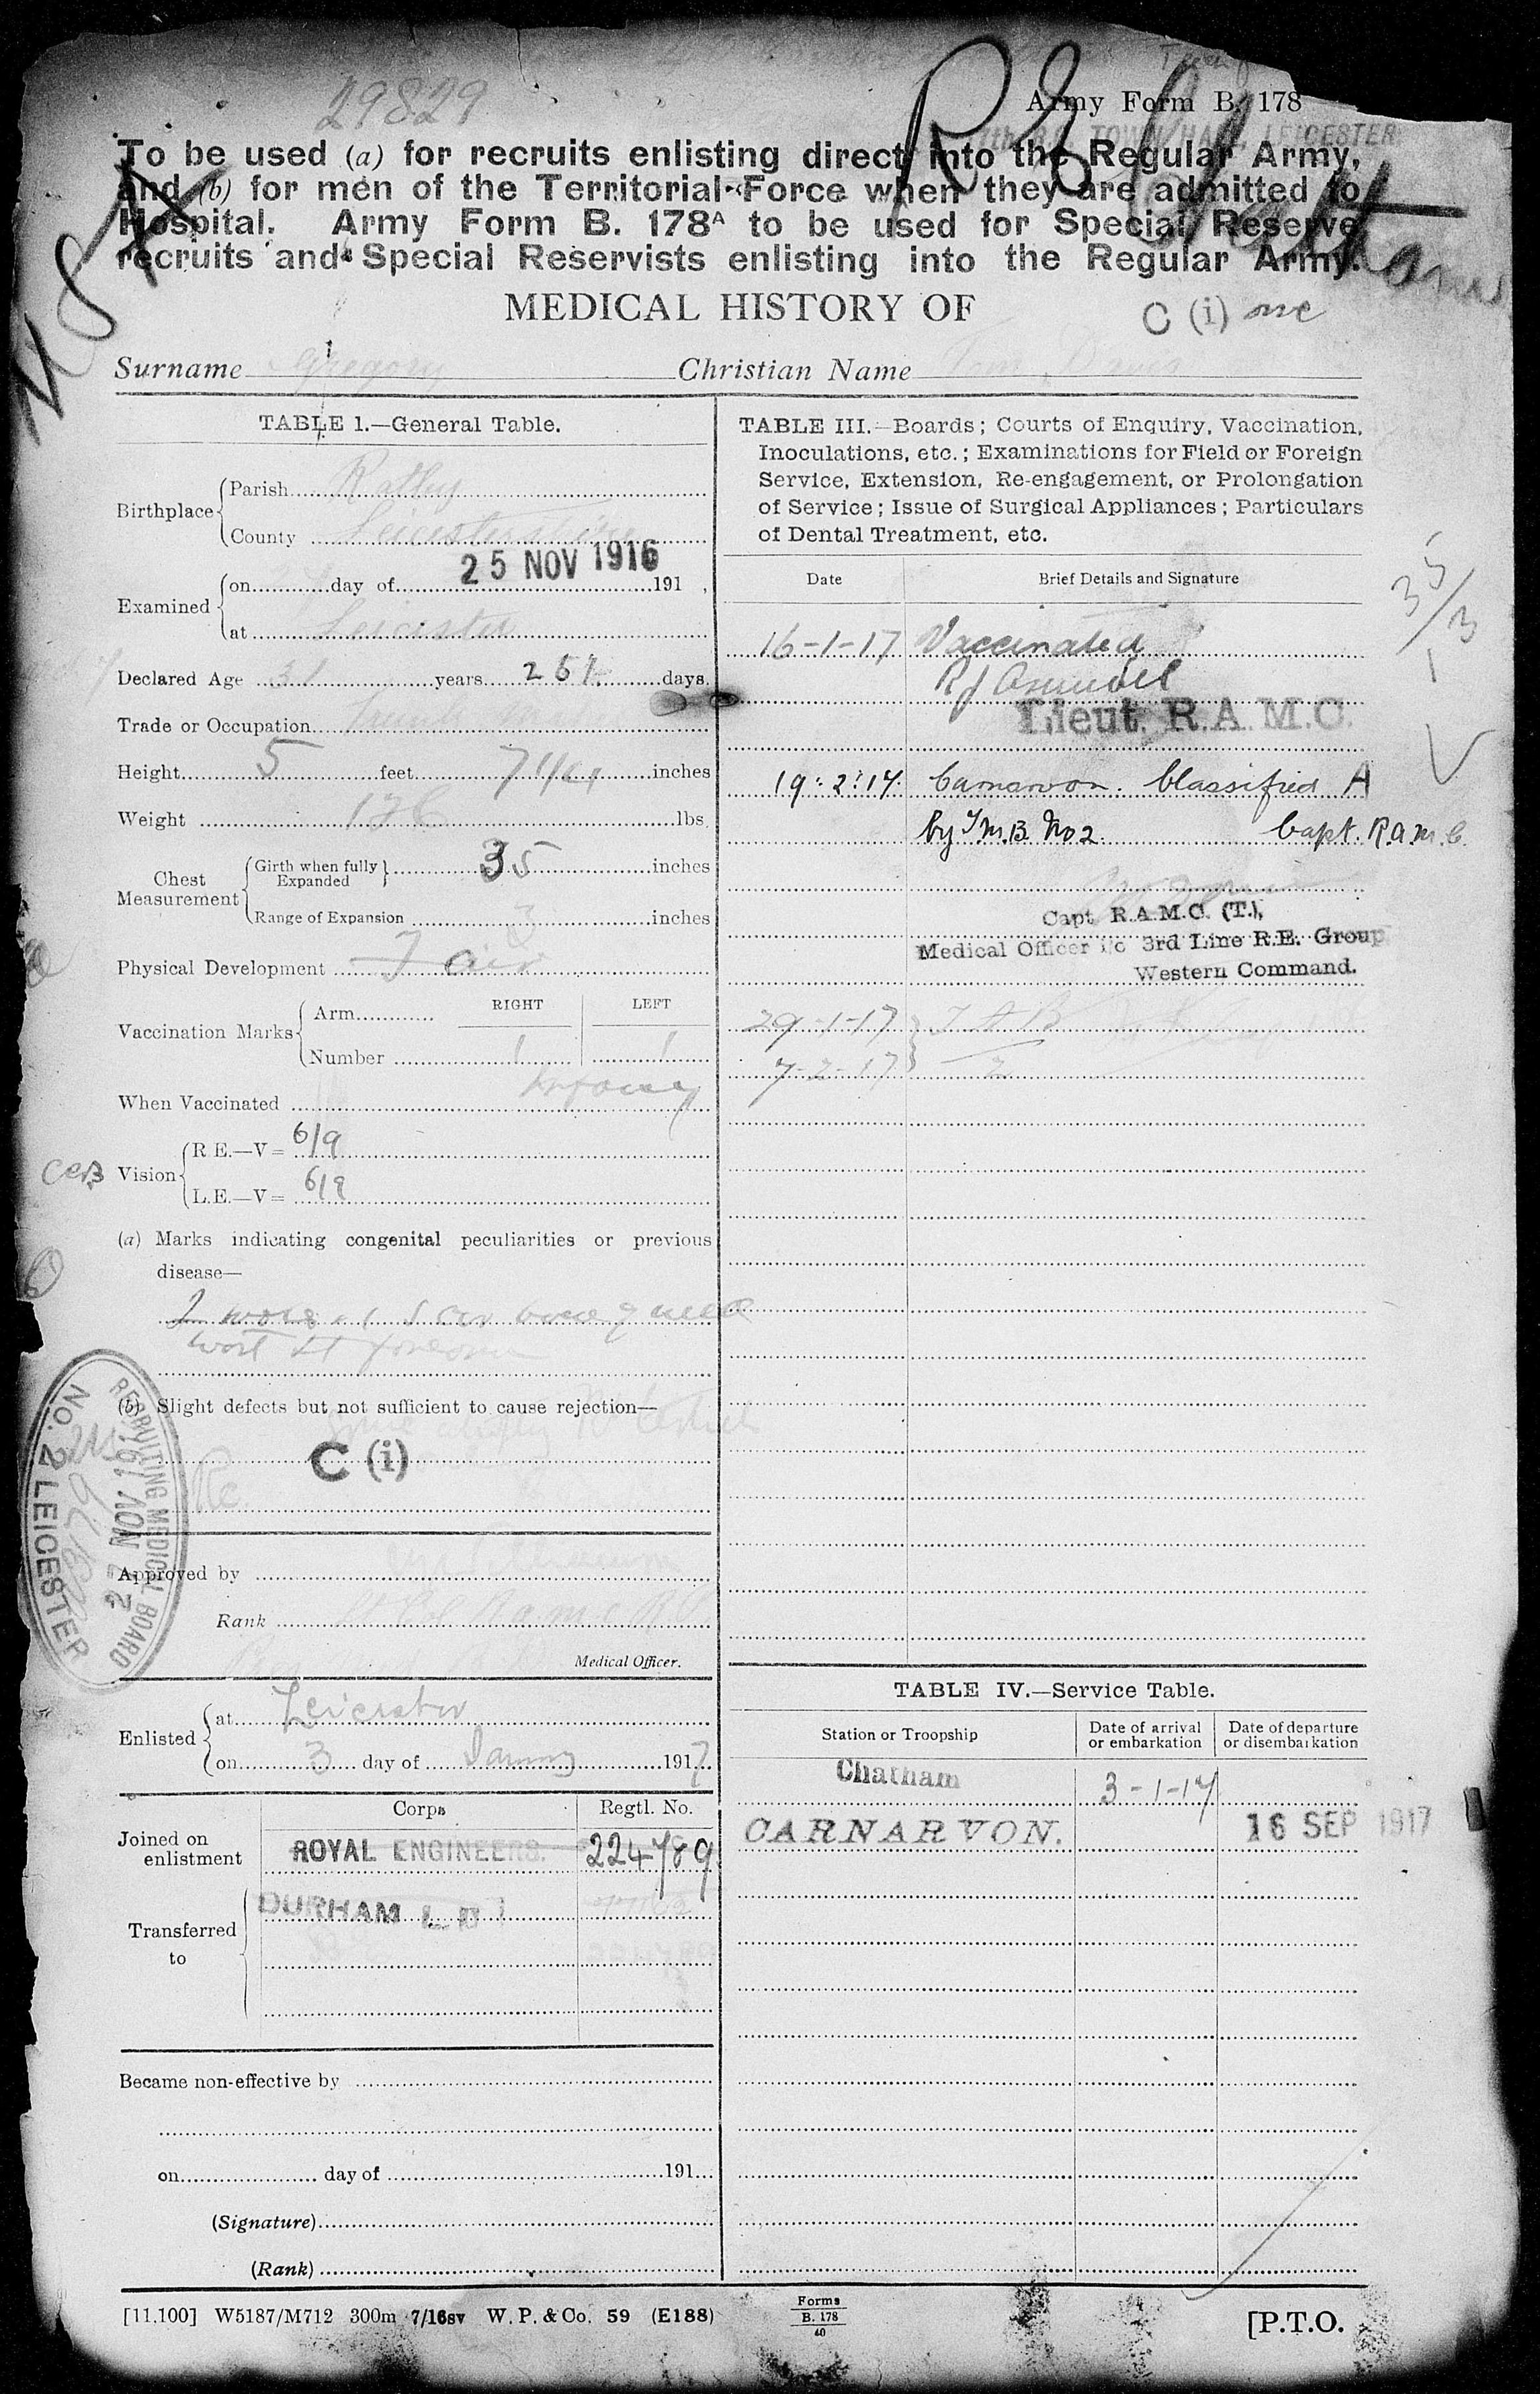 29829
Army Form B. 178
R.E. Chatham
TOWN HALL, LEICESTER
To be used (a) for recruits enlisting direct into the Regular Army,
and (b) for men of the Territorial Force when they are admitted to
Hospital. Army Form B. 178A to be used for Special Reserve
recruits and Special Reservists enlisting into the Regular Army.
MEDICAL HISTORY OF
C (i)
Surname Gregory Christian Name Tom
TABLE I.—General Table.
Birthplace
Parish Ratby
County Leicestershire
Examined
on day of 25 NOV 1916 191
at Leicester
Declared Age 31 years 251 days.
Trade or Occupation
Height 5 feet 7 inches
Weight 126 lbs.
Chest Measurement
Girth when fully Expanded 35 inches
Range of Expansion 3 inches
Physical Development Fair
Vaccination Marks
Arm RIGHT LEFT
Number 1 1
When Vaccinated Infancy
CEB
Vision
R.E.—V= 6/9
L.E.—V= 6/9
(a) Marks indicating congenital peculiarities or previous
disease—
(b) Slight defects but not sufficient to cause rejection—
C (i)
RECRUITING MEDICAL BOARD
27 NOV 1916
NO. 2 LEICESTER
Approved by
Rank Lt Col R.A.M.C.
Medical Officer.
Enlisted
at Leicester
on 3 day of January 1917
Corps Regtl. No.
Joined on
enlistment
ROYAL ENGINEERS. 224789
Transferred
to
DURHAM L.I.
Became non-effective by
on day of 191
(Signature)
(Rank)
TABLE III.—Boards; Courts of Enquiry, Vaccination,
Inoculations, etc.; Examinations for Field or Foreign
Service, Extension, Re-engagement, or Prolongation
of Service; Issue of Surgical Appliances; Particulars
of Dental Treatment, etc.
35/3
Date Brief Details and Signature
16-1-17 Vaccinated
Lieut. R.A.M.C.
19:2:17. Carnarvon. Classified A
by T.M.B. No 2. Capt. R.A.M.C.
Capt R.A.M.C. (T.),
Medical Officer i/c 3rd Line R.E. Group
Western Command.
29-1-17 T A B
7-2-17 2
TABLE IV.—Service Table.
Station or Troopship
Date of arrival
or embarkation
Date of departure
or disembarkation
Chatham 3-1-17
CARNARVON. 16 SEP 1917
[11.100] W5187/M712 300m 7/16sv W. P. & Co. 59 (E188)
Forms
B. 178
40
[P.T.O.